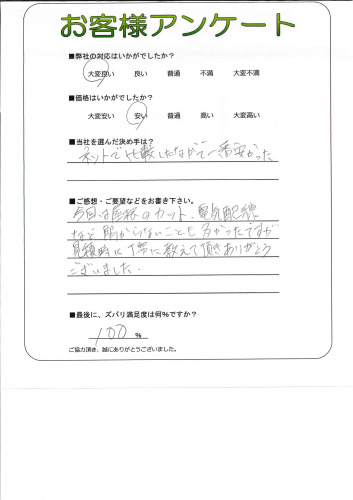 お客様アンケート
■弊社の対応はいかがでしたか?
大変良い 良い 普通 不満 大変不満
■価格はいかがでしたか?
大変安い 安い 普通 高い 大変高い
■当社を選んだ決め手は?
ネットで比較したなかで一番安かった
■ご感想・ご要望などをお書き下さい。
今回は屋根のカット、電気配線
など 解からないことも多かったですが
見積時に丁寧に教えて頂きありがとう
ございました。
■最後に、ズバリ満足度は何%ですか?
100 %
ご協力頂き、誠にありがとうございました。